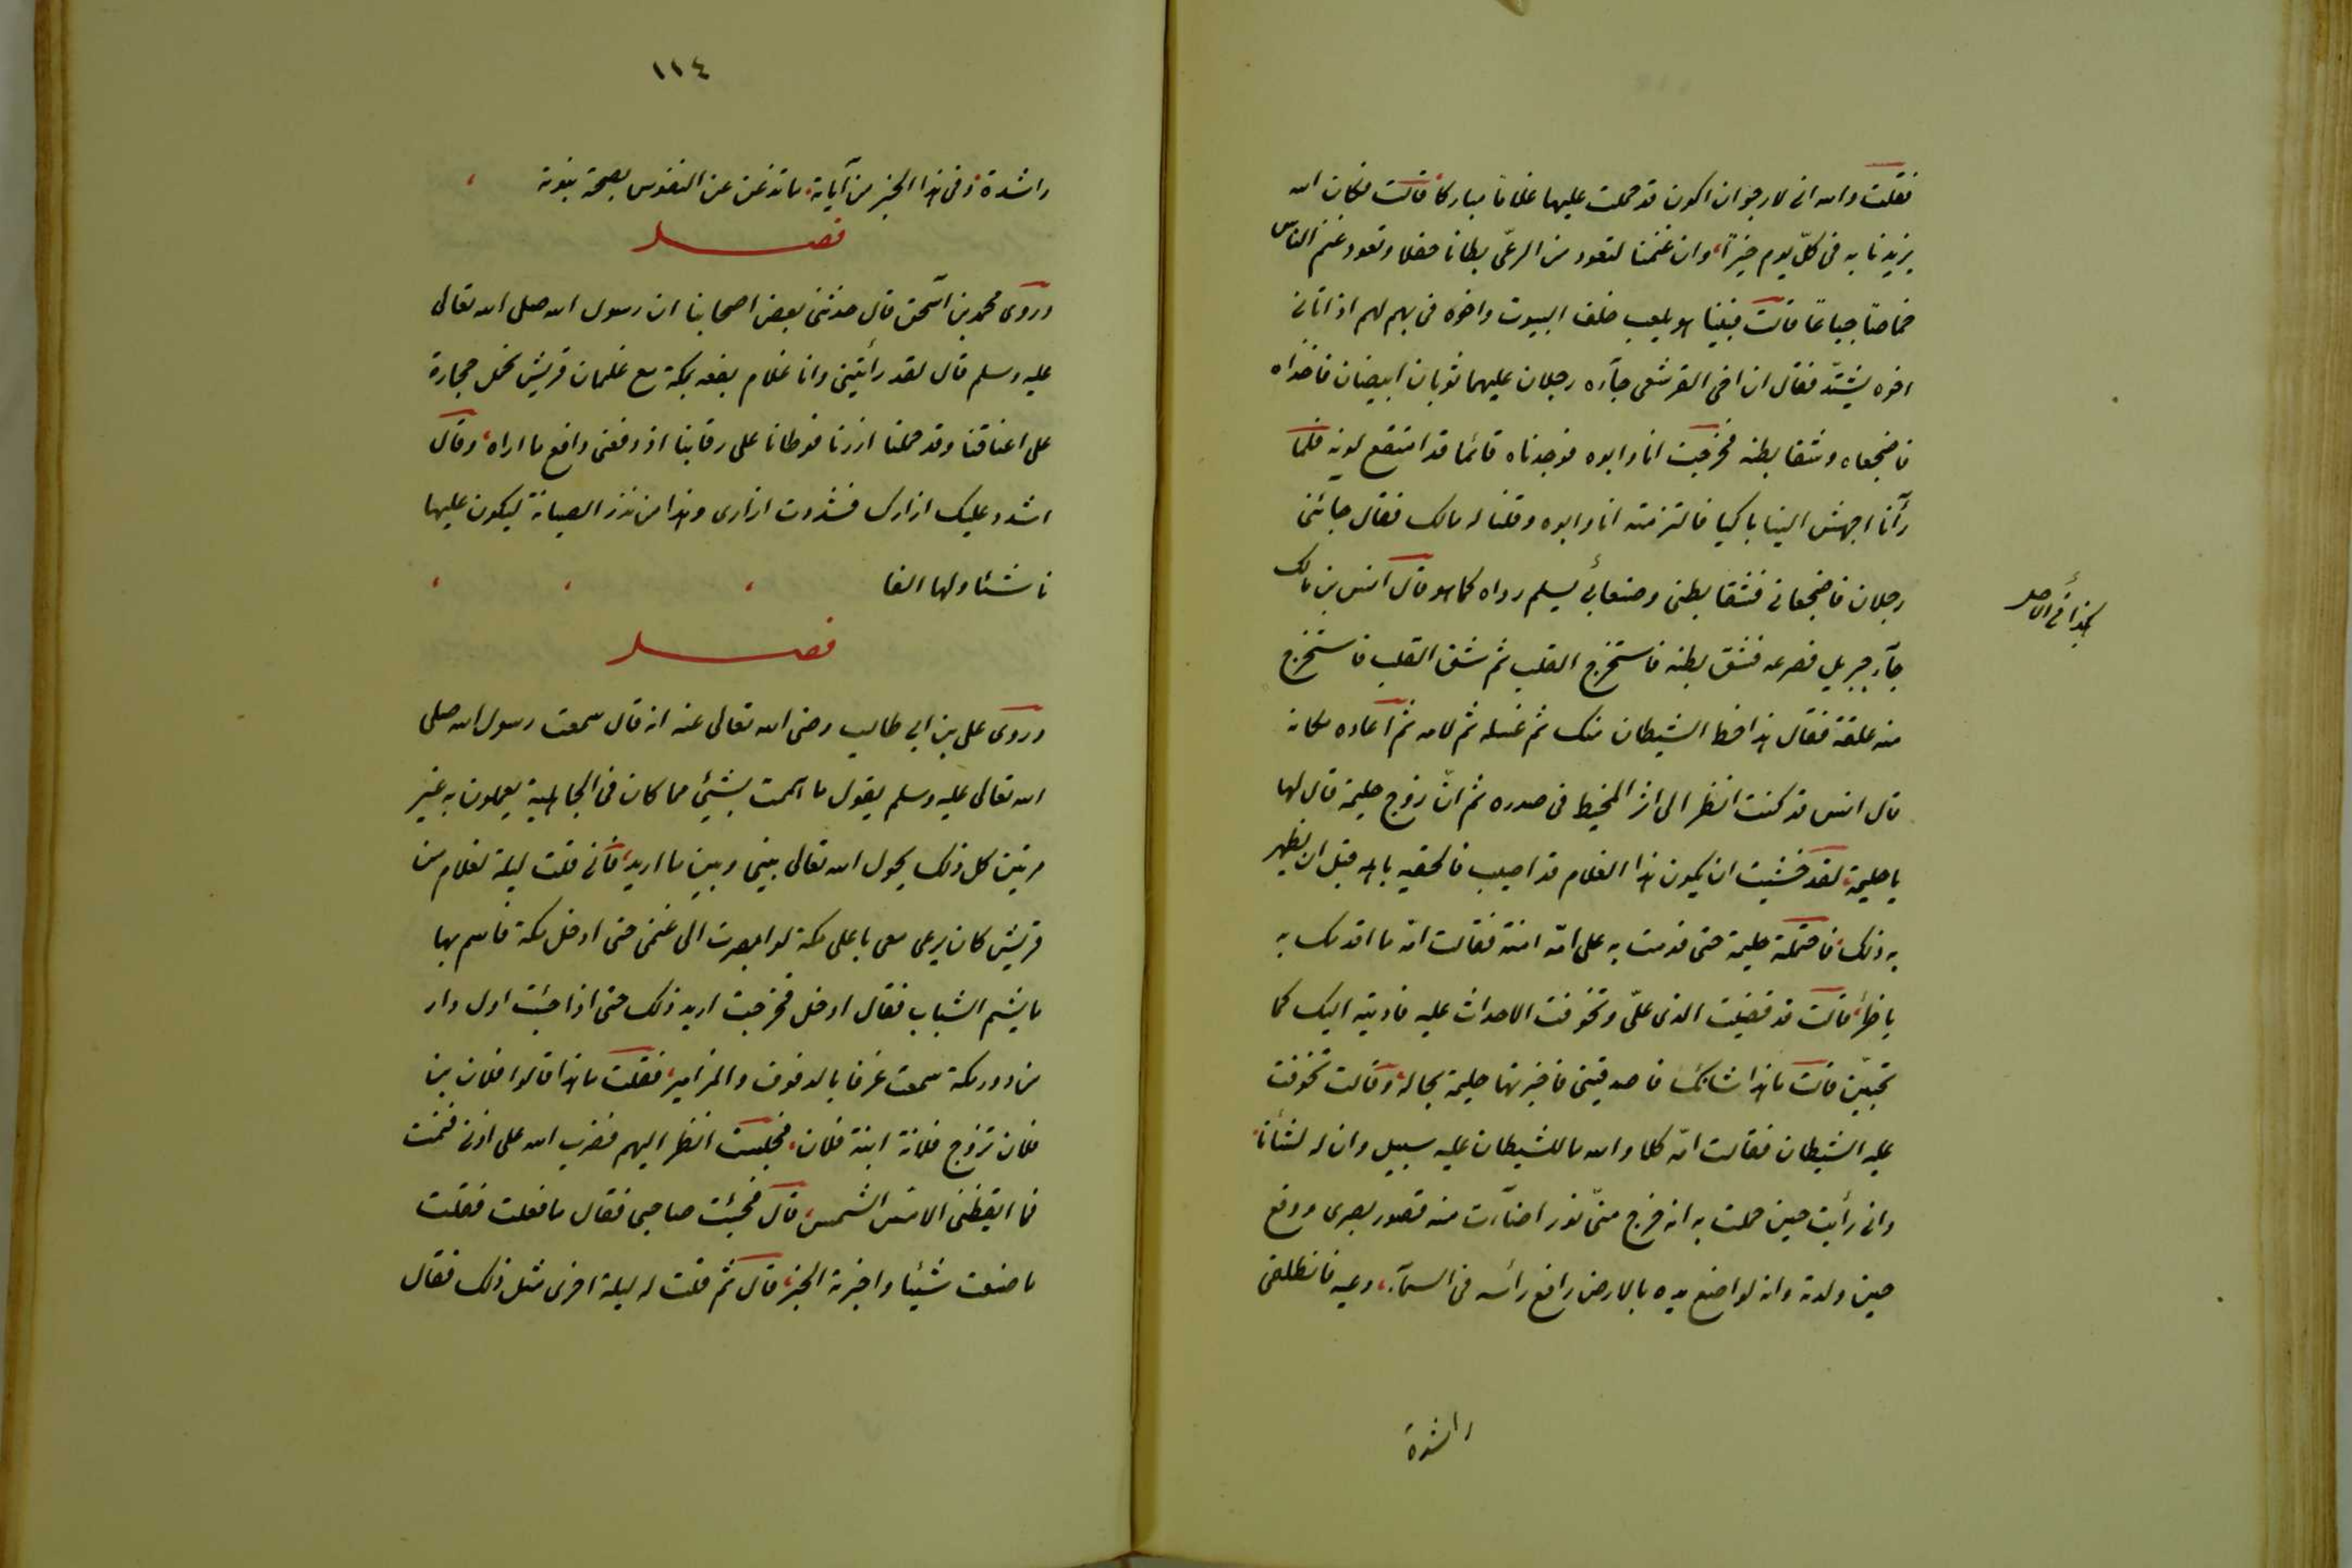 فقلت والله انى لارجو ان اكون قد حملت عليها غلاما مباركا قالت فكان الله
يزيدنا به فى كلّ يوم خيرًا وان غنمنا لتعود من الرعى بطانا حفلا وتعود غنم الناس
خماصًا جياعًا قالت فبينا هو يلعب خلف البيوت واخوه فى بهم لهم اذ اتانى
اخوه يشتدّ فقال ان اخى القرشى جآءه رجلان عليهما ثوبان ابيضان فاخذاه
فاضجعاه وشقا بطنه فخرجت انا وابوه فوجدناه قائما قد امتقع لونه فلما
رآنا اجهش الينا باكيا فالتزمته انا وابوه وقلنا له مالك فقال جائنى
رجلان فاضجعانى فشقا بطنى وصنعا بى يسلم رواه كما هو قال انس بن مالك
هكذا فى الاصل
جآء جبريل فصرعه فشق بطنه فاستخرج القلب ثم شق القلب فاستخرج
منه علقة فقال هذا حظ الشيطان منك ثم غسله ثم لامه ثم اعاده مكانه
قال انس قد كنت انظر الى اثر المخيط فى صدره ثم انّ زوج حليمة قال لها
يا حليمة لقد خشيت ان يكون هذا الغلام قد اصيب فالحقيه باهله قبل ان يظهر
به ذلك فاحتملته حليمة حتى قدمت به على امّه امنة فقالت امّه ما اقدمك به
يا ظئر قالت قد قضيت الذى علىّ وتخوفت الاحداث عليه فاديته اليك كما
تحبّين قالت ما هذا شانك فاصدقينى فاخبرتها حليمة بحاله وقالت تخوفت
عليه الشيطان فقالت امّه كلا والله ما للشيطان عليه سبيل وان له لشأنا
وانى رأيت حين حملت به انه خرج منّى نور اضآءت منه قصور بصرى ووقع
حين ولدته وانه لواضع يده بالارض رافع رأسه فى السمآء دعيه فانطلقى
راشدة
١١٤
راشدة وفى هذا الخبر من آياته ما تذعن عن النفوس بصحة نبوته
فصل
وروى محمد بن اسحق قال حدثنى بعض اصحابنا ان رسول الله صلى الله تعالى
عليه وسلم قال لقد رأيتنى وانا غلام يفعه بمكة مع غلمان قريش نحمل حجارة
على اعناقنا وقد حملنا ازرنا فوطانا على رقابنا اذ دفعنى دافع ما اراه وقال
اشدد عليك ازارك فشددت ازارى وهذا من نذر الصيانة ليكون عليها
ناشئا ولها الفا
فصل
وروى على بن ابى طالب رضى الله تعالى عنه انه قال سمعت رسول الله صلى
الله تعالى عليه وسلم يقول ما هممت بشيئ مما كان فى الجاهلية يعملون به غير
مرتين كل ذلك يحول الله تعالى بينى وبين ما اريد فانى قلت ليلة لغلام من
قريش كان يرعى معى باعلى مكة لو ابصرت الى غنمى حتى ادخل مكة فاسمر بها
ما يسم الشباب فقال ادخل فخرجت اريد ذلك حتى اذا جئت اول دار
من دور مكة سمعت عزفا بالدفوف والمزامير فقلت ما هذا قالوا فلان بن
فلان تزوج فلانة ابنة فلان فجلست انظر اليهم فضرب الله على اذنى فنمت
فما ايقظنى الا مس الشمس قال فجئت صاحبى فقال ما فعلت فقلت
ما صنعت شيئا واخبرته الخبر قال ثم قلت له ليلة اخرى مثل ذلك فقال